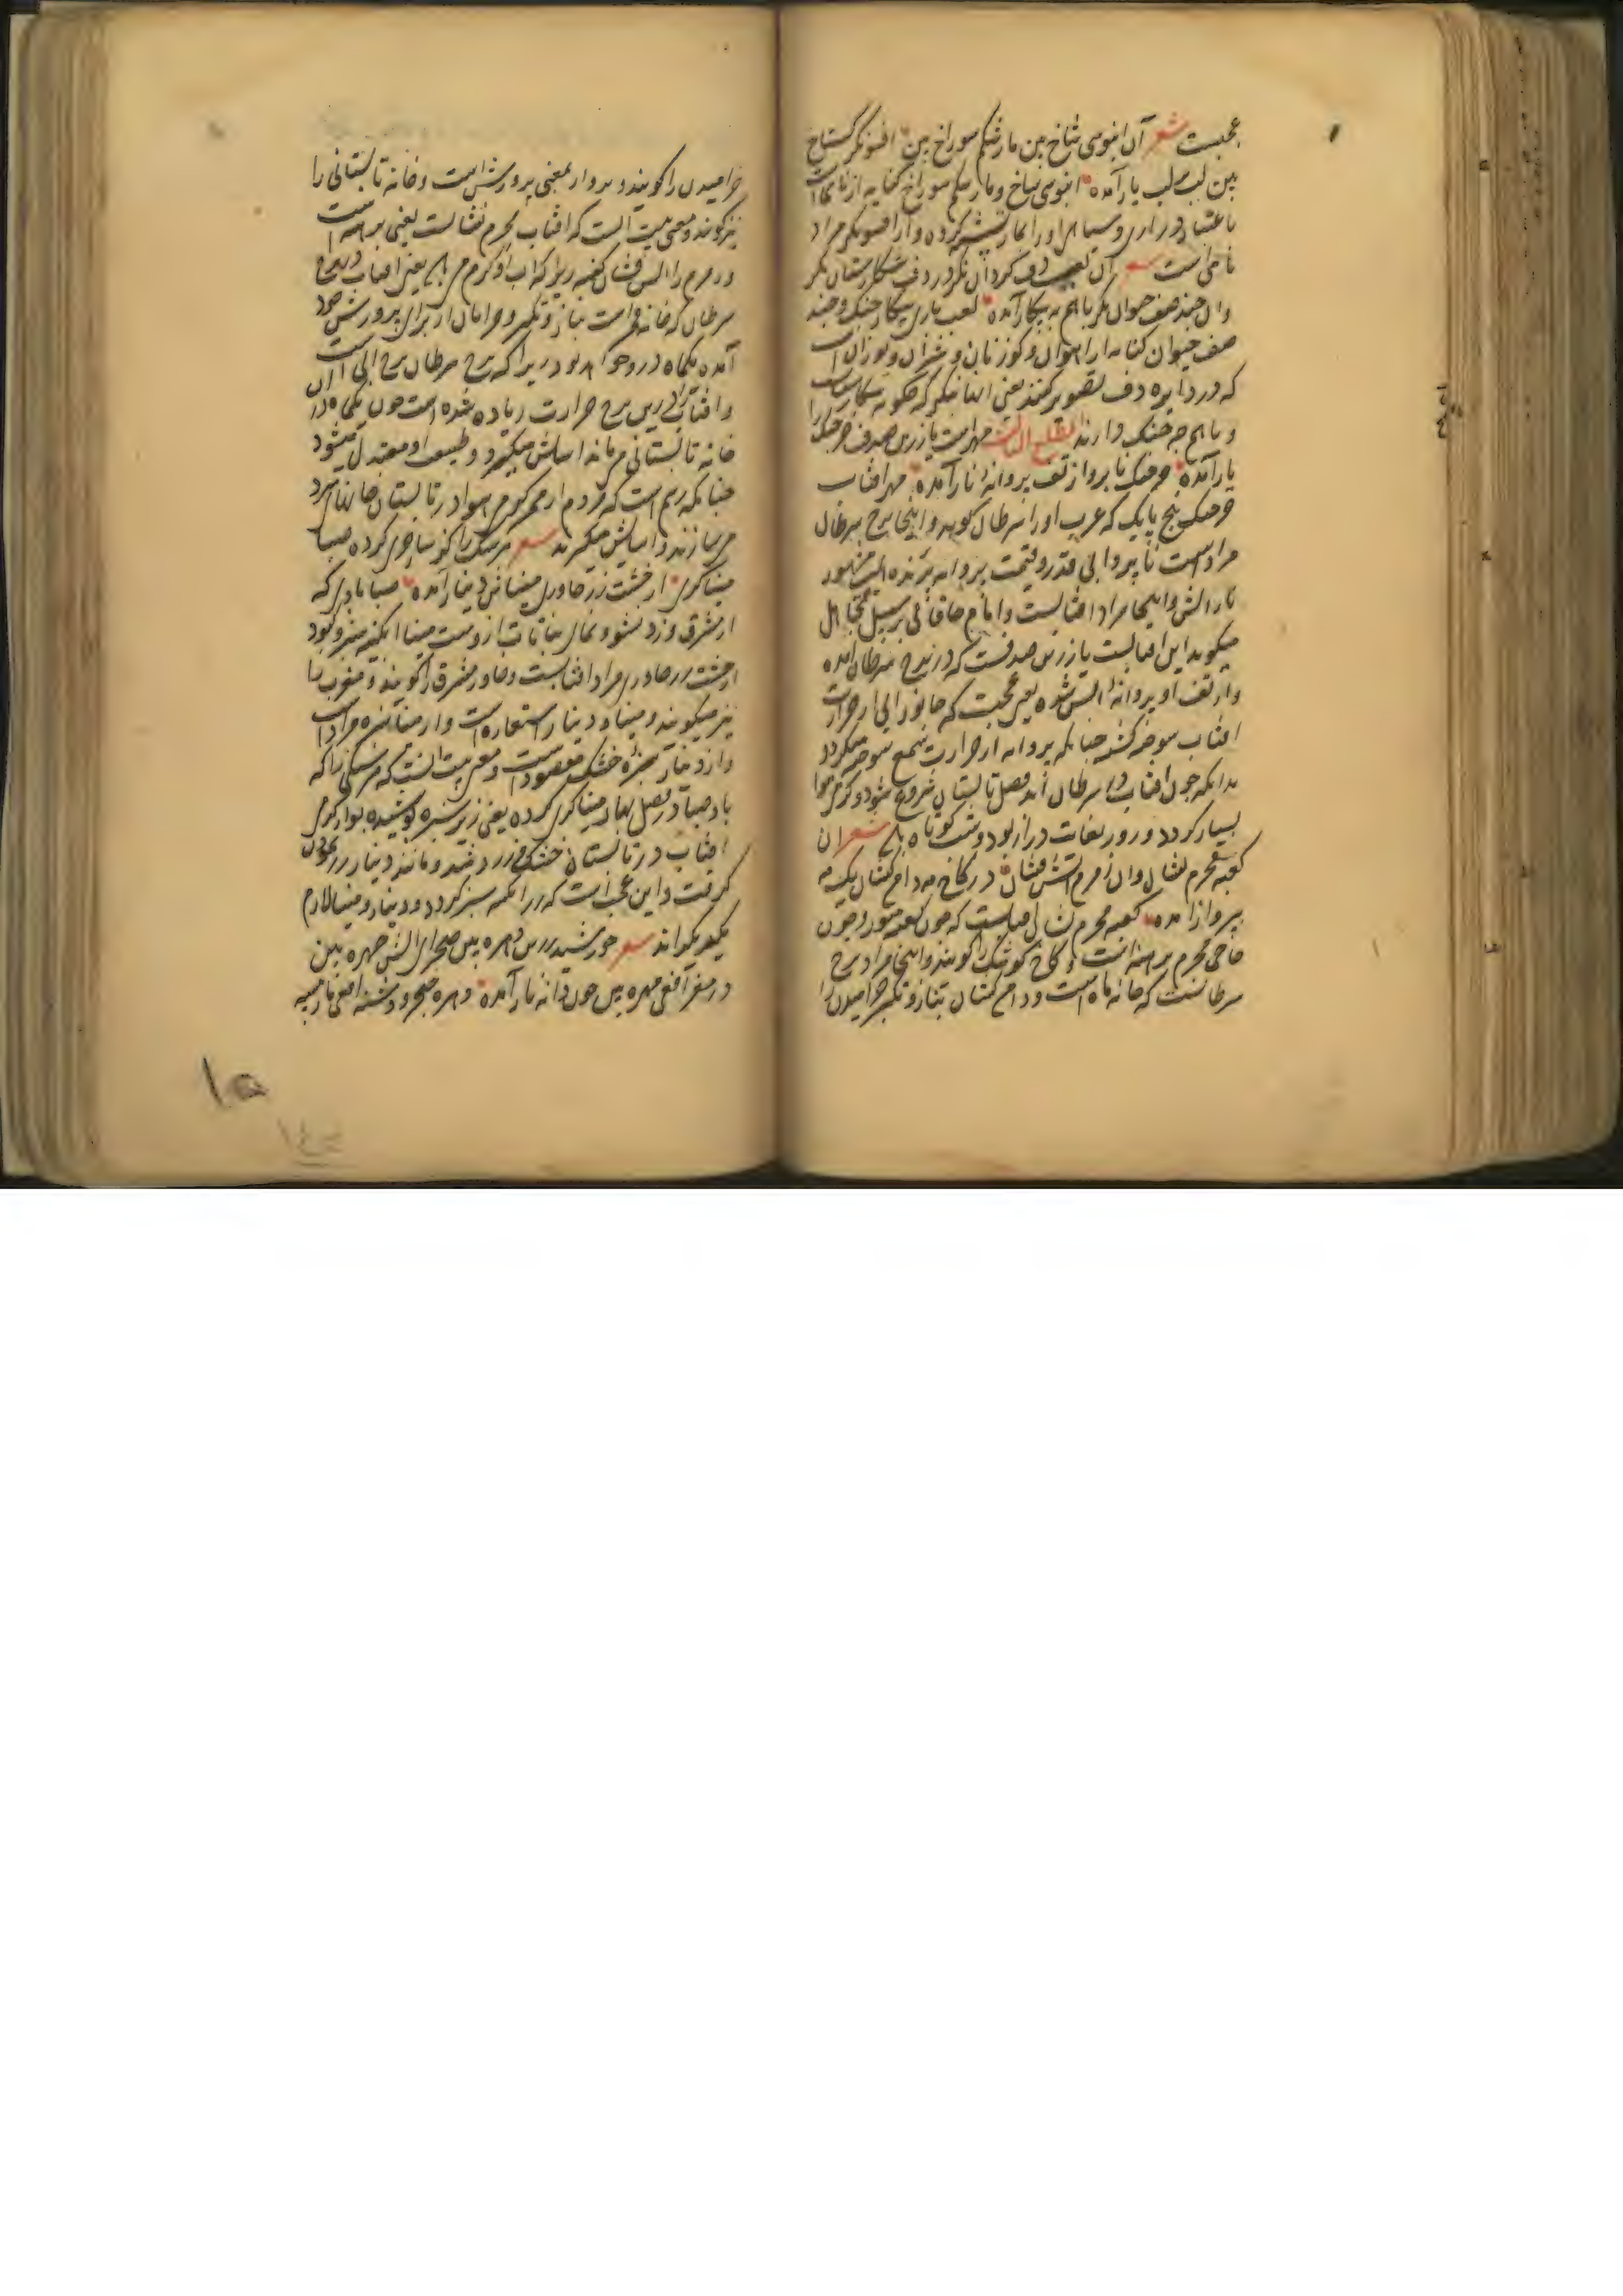 عجبست شعر آن ابنوسی شاخ بین مار شکم سوراخ بین افسونگر گستاخ
بین لب بر لب یار آمده ابنوسی شاخ و مار شکم سوراخ کنایه از نای است
باعتبار درازی و سیاهی او را بمار تشبیه کرده و از افسونگر مراد
نایی است شعر آن لعب دف گردان نگر در دف شکارستان نگر
وان چند صف حیوان نگر با هم به پیکار آمده لعب بازی پیکار جنگ و چند
صف حیوان کنایه از آهوان و گوزنان و شیران و یوزان است
که در دایره دف تصویر کنند یعنی
و با هم چه جنگ دارند مطلع الثالث مهر است یا زرین صدف خرچنگ را
یار آمده خرچنگ ناپروا ز تف پروانه نار آمده مهر افتاب
خرچنگ پنج پایک که عرب او را سرطان گویند و اینجا برج سرطان
مراد است ناپروا بی قدر و قیمت پروانه پرنده ایست مشهور
نار آتش و اینجا مراد افتابست و امام خاقانی بر سبیل تجاهل
میگوید این افتابست یا زرین صدفست که در برج سرطان آمده
و از تف او پروانه آتش شده یعنی عجبست که جانور آبی از حرارت
افتاب سوخته گشته چنانکه پروانه از حرارت شمع سوخته میگردد
بدانکه چون افتاب در سرطان آید فصل تابستان شروع شود و گرمی هوا
بسیار گردد و روز بغایت دراز بود و شب کوتاه شعر آن
کعبه محرم نشان وان زمزم آتش فشان در کاخ مه دامن کشان یک مه
پرواز آمده کعبه محرم نشان افتابست که چون کعبه منور و چون
حاجی محرم برهنه است و کاخ کوشک را گویند و اینجا مراد برج
سرطانست که خانه ماه است و دامن کشان بناز و تکبر خرامیدن را
خرامیدن را گویند و پروار بمعنی پرورش است و خانه تابستانی را
نیز گویند و معنی بیت آنست که افتاب محرم نشانست یعنی برهنه است
و زمزم را آتش فشان گفته زیرا که آب او گرم می باشد یعنی افتاب در برج
سرطان که خانه قمر است بناز و تکبر و خرامان از برای پرورش خود
آمده یکماه درو خواهد بود زیرا که برج سرطان برج آبی است
و افتاب را درین برج حرارت زیاده شده است چون یکماه در
خانه تابستانی می ماند آسایش میگیرد و طبیعت او معتدل میشود
چنانکه رسم است که مردم از ممر گرمی هوا در تابستان خانهای سرد
می سازند و آسایش میگیرند شعر هر سنگ را گر ساحری کرده صبا
میناگری از خشت زر خاوری میناش دینار آمده صبا بادی که
از مشرق وزد نشو و نمای نباتات ازوست مینا آبگینه سبز و کبود
از خشت زر خاوری مراد افتابست و خاور مشرق را گویند و مغرب را
نیز میگویند و مینا و دینار استعاره است و از مینا سبزه مراد است
و از دینار سبزه خشک مقصود است و معنی بیت آنست که هر سنگی را که
باد صبا در فصل بهار میناگری کرده یعنی زیر سبزه پوشیده بود از گرمی
افتاب در تابستان خشک و زرد شد و مانند دینار زر
گرفت و این عجب است که زر انگه سبز گردد و دینار و مینا لازم
یکدیگراند شعر خورشید زرین دهره بین صحرای آتش چهره بین
در مغز افعی مهره بین چون دانه نار آمده دهره خنجر و دشنه افعی مار سیه
۱۵